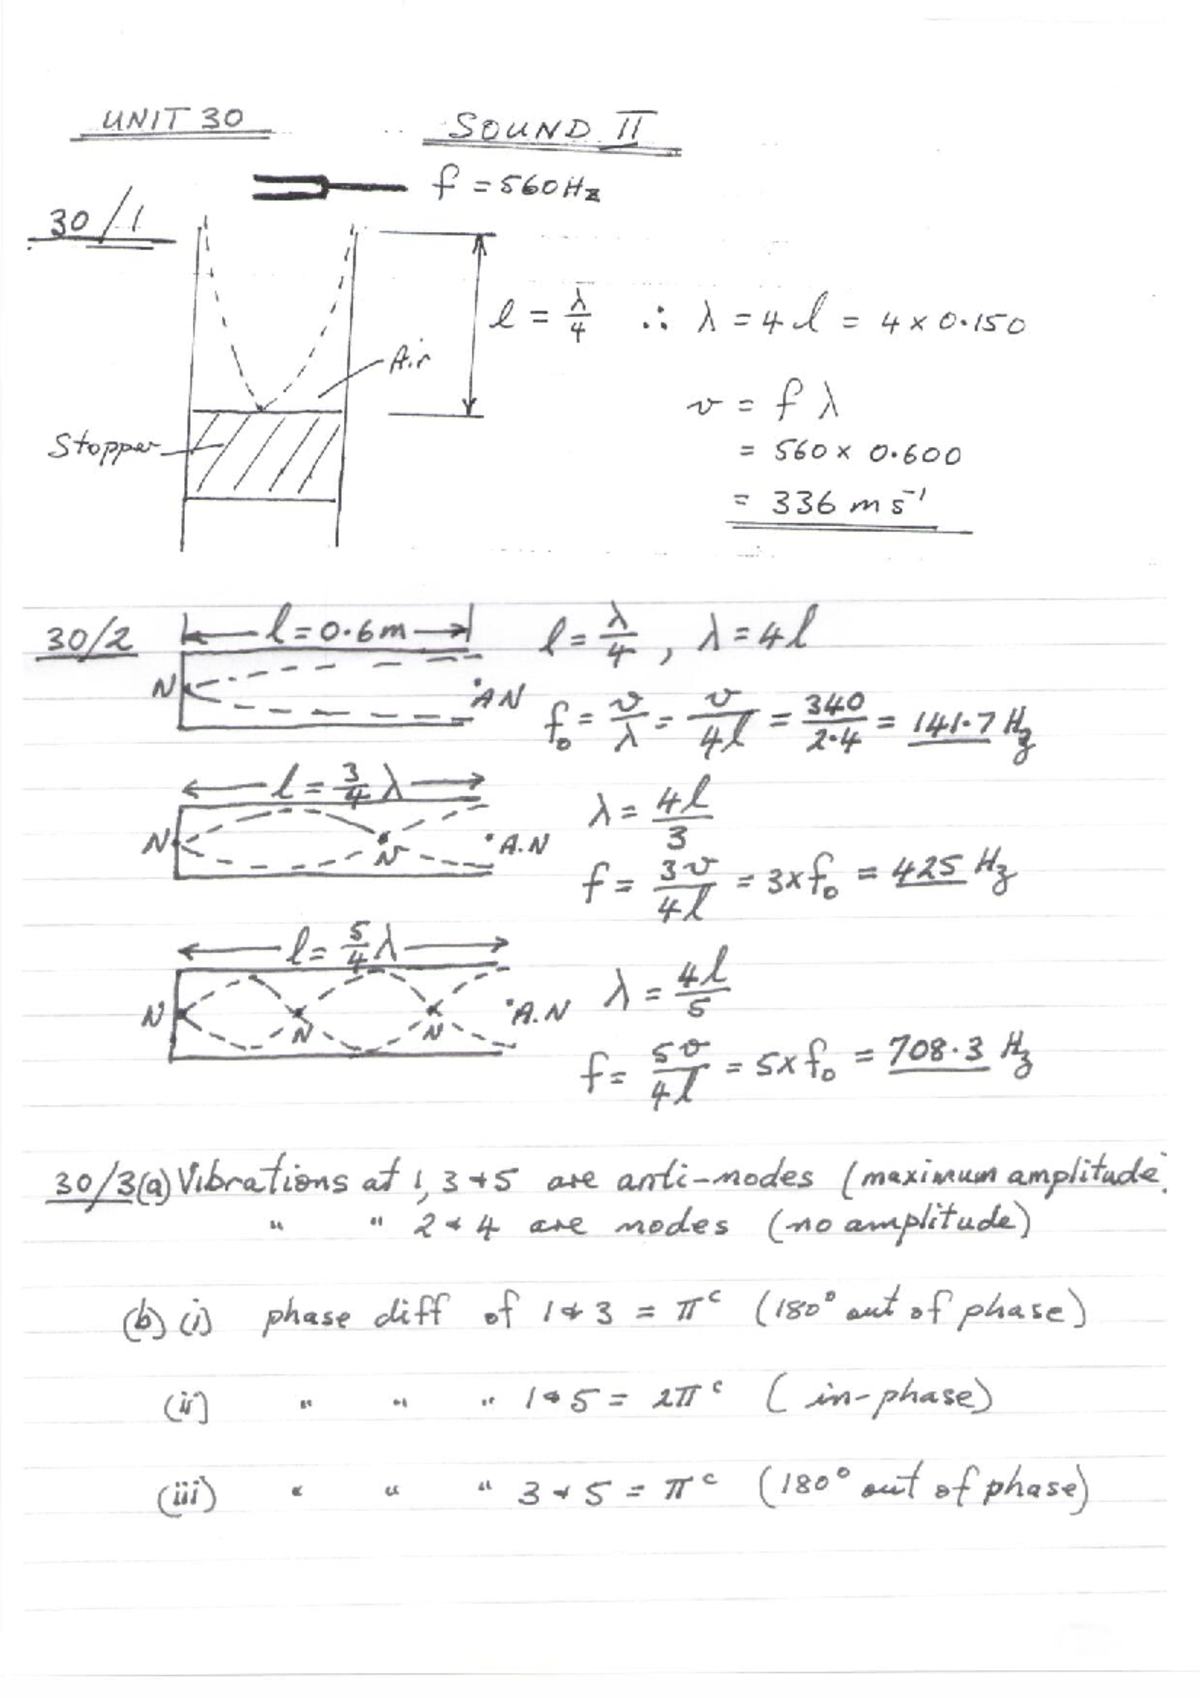 UNIT 30 SOUND II
f = 560Hz
30/1
l = λ/4 ∴ λ = 4l = 4 x 0.150
Air
v = f λ
Stopper
= 560 x 0.600
= 336 m s⁻¹
30/2 l = 0.6m l = λ/4 , λ = 4l
N A N f₀ = v/λ = v/4l = 340/2.4 = 141.7 Hz
l = 3/4 λ λ = 4l/3
N N A.N
f = 3v/4l = 3xf₀ = 425 Hz
l = 5/4 λ λ = 4l/5
N N N A.N
f = 5v/4l = 5xf₀ = 708.3 Hz
30/3(a) Vibrations at 1, 3 + 5 are anti-nodes (maximum amplitude)
" " 2 + 4 are nodes (no amplitude)
(b) (i) phase diff of 1 + 3 = πᶜ (180° out of phase)
(ii) " " " 1 + 5 = 2πᶜ (in-phase)
(iii) " " " 3 + 5 = πᶜ (180° out of phase)